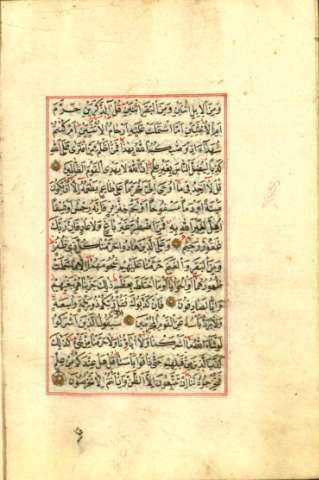 وَمِنَ الْاِبِلِ اثْنَيْنِ وَمِنَ الْبَقَرِ اثْنَيْنِ قُلْ آلذَّكَرَيْنِ حَرَّمَ
اَمِ الْاُنْثَيَيْنِ اَمَّا اشْتَمَلَتْ عَلَيْهِ اَرْحَامُ الْاُنْثَيَيْنِ اَمْ كُنْتُمْ
شُهَدَاءَ اِذْ وَصّٰيكُمُ اللّٰهُ بِهٰذَا فَمَنْ اَظْلَمُ مِمَّنِ افْتَرٰى عَلَى اللّٰهِ
كَذِبًا لِيُضِلَّ النَّاسَ بِغَيْرِ عِلْمٍ اِنَّ اللّٰهَ لَا يَهْدِي الْقَوْمَ الظَّالِمِينَ
قُلْ لَا اَجِدُ فِي مَا اُوحِيَ اِلَيَّ مُحَرَّمًا عَلٰى طَاعِمٍ يَطْعَمُهُ اِلَّا اَنْ يَكُونَ
مَيْتَةً اَوْ دَمًا مَسْفُوحًا اَوْ لَحْمَ خِنْزِيرٍ فَاِنَّهُ رِجْسٌ اَوْ فِسْقًا
اُهِلَّ لِغَيْرِ اللّٰهِ بِهِ فَمَنِ اضْطُرَّ غَيْرَ بَاغٍ وَلَا عَادٍ فَاِنَّ رَبَّكَ
غَفُورٌ رَحِيمٌ وَعَلَى الَّذِينَ هَادُوا حَرَّمْنَا كُلَّ ذِي ظُفُرٍ
وَمِنَ الْبَقَرِ وَالْغَنَمِ حَرَّمْنَا عَلَيْهِمْ شُحُومَهُمَا اِلَّا مَا حَمَلَتْ
ظُهُورُهُمَا اَوِ الْحَوَايَا اَوْ مَا اخْتَلَطَ بِعَظْمٍ ذٰلِكَ جَزَيْنَاهُمْ بِبَغْيِهِمْ
وَاِنَّا لَصَادِقُونَ فَاِنْ كَذَّبُوكَ فَقُلْ رَبُّكُمْ ذُو رَحْمَةٍ وَاسِعَةٍ
وَلَا يُرَدُّ بَاْسُهُ عَنِ الْقَوْمِ الْمُجْرِمِينَ سَيَقُولُ الَّذِينَ اَشْرَكُوا
لَوْ شَاءَ اللّٰهُ مَا اَشْرَكْنَا وَلَا اٰبَاؤُنَا وَلَا حَرَّمْنَا مِنْ شَيْءٍ كَذٰلِكَ
كَذَّبَ الَّذِينَ مِنْ قَبْلِهِمْ حَتّٰى ذَاقُوا بَاْسَنَا قُلْ هَلْ عِنْدَكُمْ مِنْ عِلْمٍ
فَتُخْرِجُوهُ لَنَا اِنْ تَتَّبِعُونَ اِلَّا الظَّنَّ وَاِنْ اَنْتُمْ اِلَّا تَخْرُصُونَ